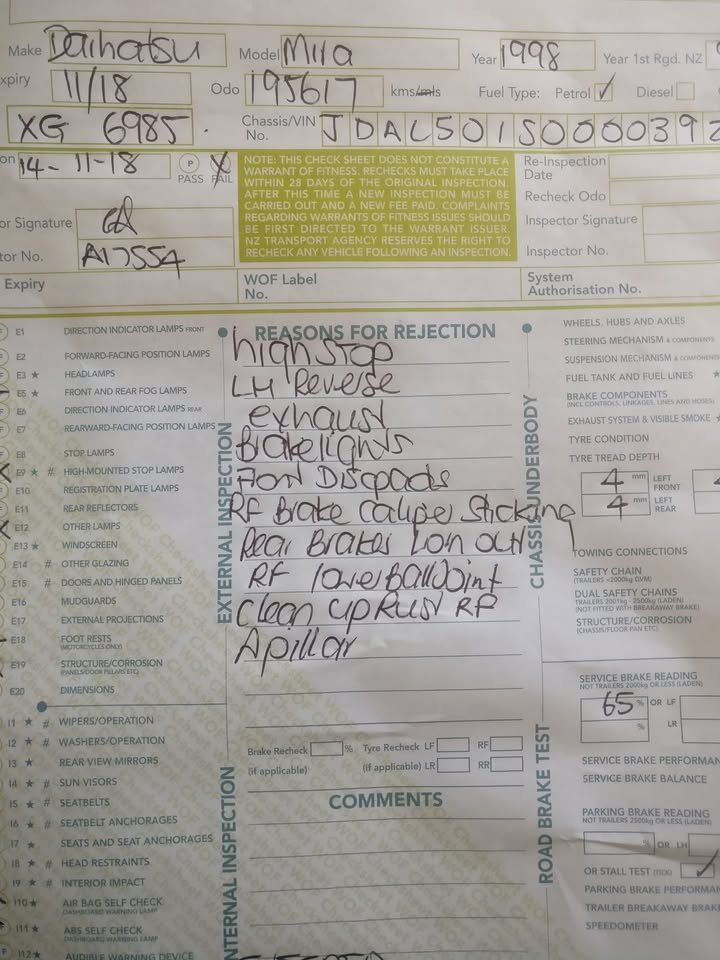 Make Daihatsu Model Mira Year 1998 Year 1st Rgd. NZ
xpiry 11/18 Odo 195617 kms/mls Fuel Type: Petrol ✓ Diesel
XG 6985. Chassis/VIN No. JDAL501S0000392
on 14-11-18 P PASS FAIL
NOTE: THIS CHECK SHEET DOES NOT CONSTITUTE A
WARRANT OF FITNESS. RECHECKS MUST TAKE PLACE
WITHIN 28 DAYS OF THE ORIGINAL INSPECTION.
AFTER THIS TIME A NEW INSPECTION MUST BE
CARRIED OUT AND A NEW FEE PAID. COMPLAINTS
REGARDING WARRANTS OF FITNESS ISSUES SHOULD
BE FIRST DIRECTED TO THE WARRANT ISSUER.
NZ TRANSPORT AGENCY RESERVES THE RIGHT TO
RECHECK ANY VEHICLE FOLLOWING AN INSPECTION.
Re-Inspection
Date
Recheck Odo
Inspector Signature
Inspector No.
or Signature
tor No. A17554
Expiry
WOF Label
No.
System
Authorisation No.
E1 DIRECTION INDICATOR LAMPS FRONT
E2 FORWARD-FACING POSITION LAMPS
E3 ★ HEADLAMPS
E5 ★ FRONT AND REAR FOG LAMPS
E6 DIRECTION INDICATOR LAMPS REAR
E7 REARWARD-FACING POSITION LAMPS
E8 STOP LAMPS
E9 ★ # HIGH-MOUNTED STOP LAMPS
E10 REGISTRATION PLATE LAMPS
E11 REAR REFLECTORS
E12 OTHER LAMPS
E13 ★ WINDSCREEN
E14 # OTHER GLAZING
E15 # DOORS AND HINGED PANELS
E16 MUDGUARDS
E17 EXTERNAL PROJECTIONS
E18 FOOT RESTS
(MOTORCYCLES ONLY)
E19 STRUCTURE/CORROSION
(PANELS/DOOR PILLARS ETC)
E20 DIMENSIONS
I1 ★ # WIPERS/OPERATION
I2 ★ # WASHERS/OPERATION
I3 ★ REAR VIEW MIRRORS
I4 ★ # SUN VISORS
I5 ★ # SEATBELTS
I6 ★ # SEATBELT ANCHORAGES
I7 ★ SEATS AND SEAT ANCHORAGES
I8 ★ # HEAD RESTRAINTS
I9 ★ # INTERIOR IMPACT
I10 ★ AIR BAG SELF CHECK
DASHBOARD WARNING LAMP
I11 ★ ABS SELF CHECK
DASHBOARD WARNING LAMP
I12 ★ AUDIBLE WARNING DEVICE
EXTERNAL INSPECTION
NTERNAL INSPECTION
REASONS FOR REJECTION
high stop
LH Reverse
exhaust
Brakelights
Discpads
RF Brake Caliper Sticking
Rear Brakes
RF lower Balljoint
Clean up Rust RF
A pillar
Brake Recheck % Tyre Recheck LF RF
(if applicable) (if applicable) LR RR
COMMENTS
CHASSIS/UNDERBODY
ROAD BRAKE TEST
WHEELS, HUBS AND AXLES
STEERING MECHANISM & COMPONENTS
SUSPENSION MECHANISM & COMPONENTS
FUEL TANK AND FUEL LINES ★
BRAKE COMPONENTS
(INCL CONTROLS, LINKAGES, LINES AND HOSES)
EXHAUST SYSTEM & VISIBLE SMOKE ★
TYRE CONDITION
TYRE TREAD DEPTH
4 mm LEFT FRONT
4 mm LEFT REAR
TOWING CONNECTIONS
SAFETY CHAIN
(TRAILERS <2000kg GVM)
DUAL SAFETY CHAINS
TRAILERS 2001kg - 2500kg (LADEN)
(NOT FITTED WITH BREAKAWAY BRAKE)
STRUCTURE/CORROSION
(CHASSIS/FLOOR PAN ETC)
SERVICE BRAKE READING
NOT TRAILERS 2000kg OR LESS (LADEN)
65 % OR LF
% LR
SERVICE BRAKE PERFORMAN
SERVICE BRAKE BALANCE
PARKING BRAKE READING
NOT TRAILERS 2500kg OR LESS (LADEN)
% OR LH
OR STALL TEST (TICK) ✓
PARKING BRAKE PERFORMAN
TRAILER BREAKAWAY BRAK
SPEEDOMETER